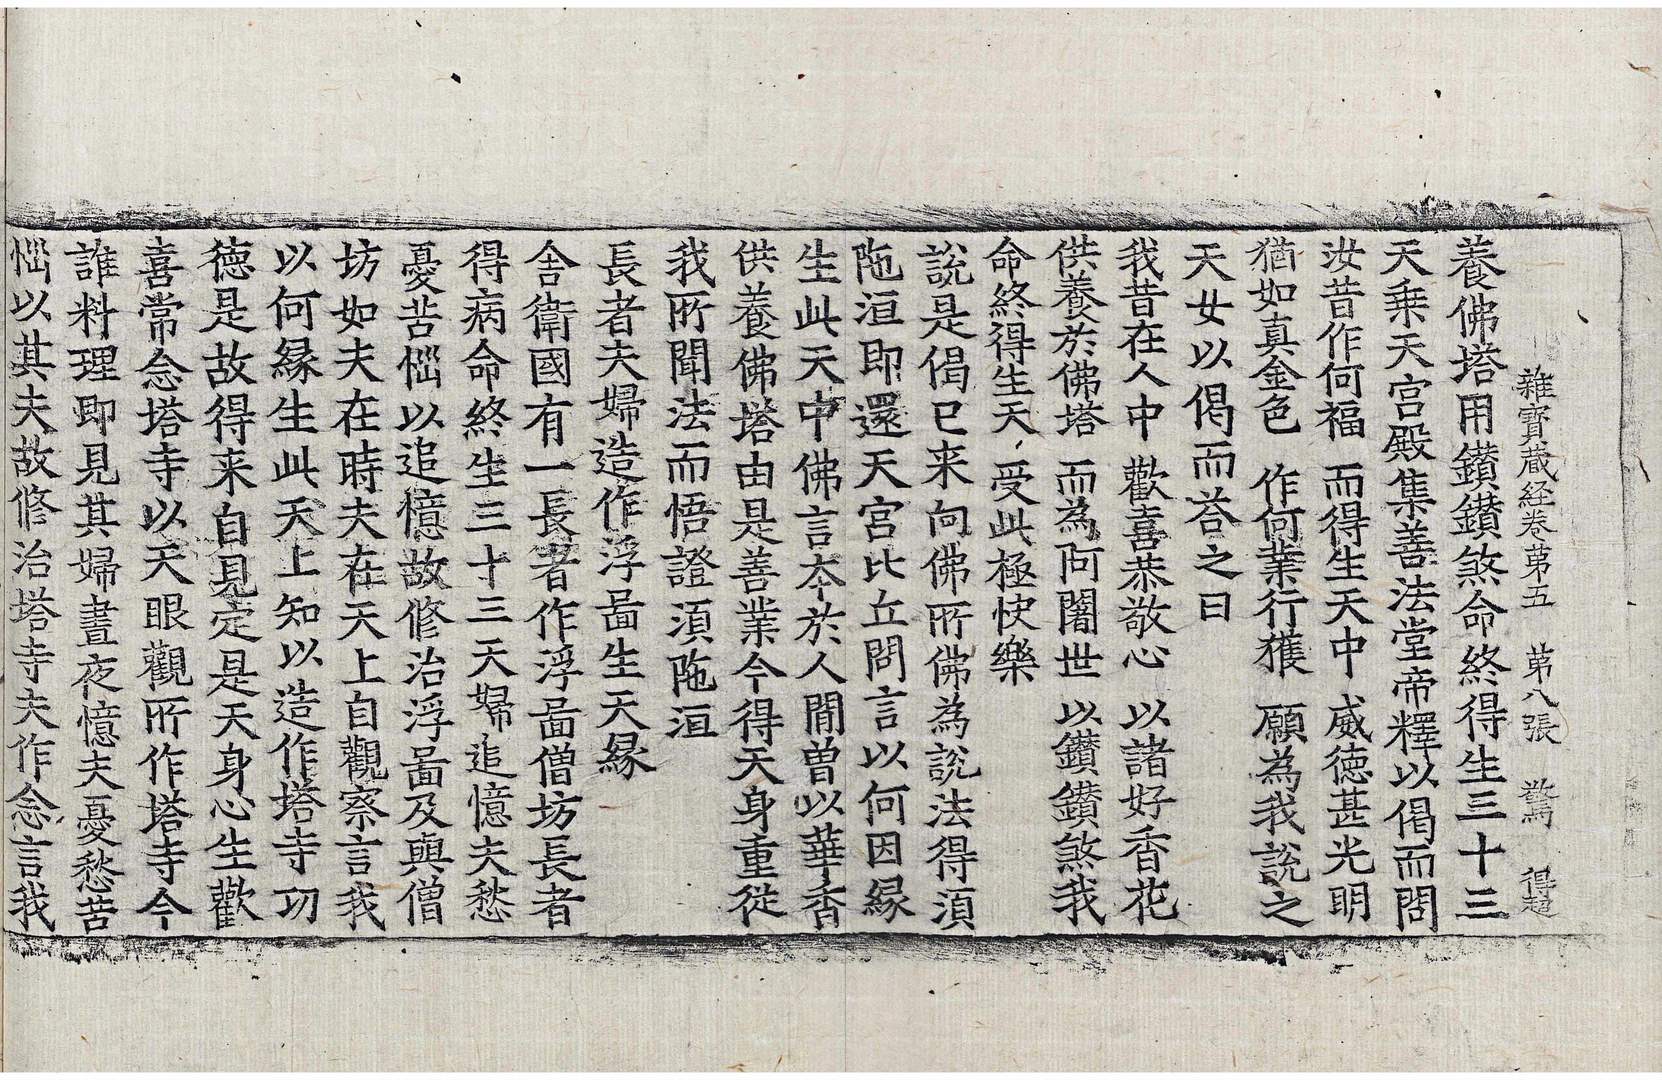 雜寶蔵経卷苐五 苐八張 驚 得超
養佛塔用鑚鑚煞命終得生三十三
天乗天宮殿集善法堂帝釋以偈而問
汝昔作何福 而得生天中 威徳甚光明
猶如真金色 作何業行獲 願為我說之
天女以偈而荅之曰
我昔在人中 歡喜恭敬心 以諸好香花
供養於佛塔 而為阿闍世 以鑚鑚煞我
命終得生天 受此極快樂
說是偈已来向佛所佛為說法得湏
陁洹即還天宮比丘問言以何因縁
生此天中佛言夲於人間曽以華香
供養佛塔由是善業今得天身重從
我所聞法而悟證湏陁洹
長者夫婦造作浮啚生天縁
舎衛國有一長者作浮啚僧坊長者
得病命終生三十三天婦追憶夫愁
憂苦惱以追憶故修治浮啚及與僧
坊如夫在時夫在天上自觀察言我
以何縁生此天上知以造作塔寺功
徳是故得来自見定是天身心生歡
喜常念塔寺以天眼觀所作塔寺今
誰料理即見其婦晝夜憶夫憂愁苦
惱以其夫故修治塔寺夫作念言我